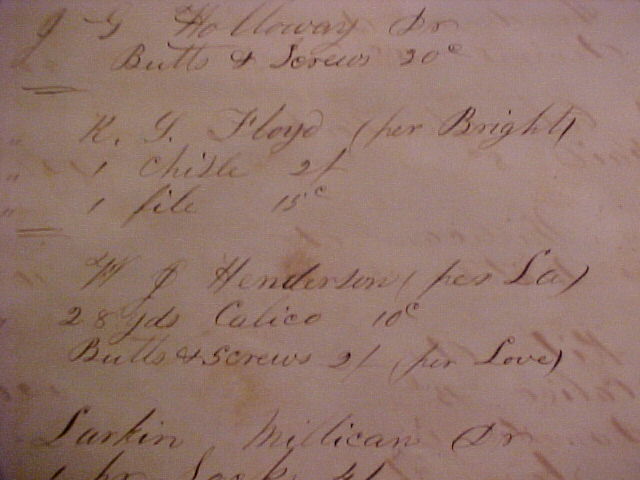 J G Holloway Dr
Butts & Screws 20c
K. G. Floyd (per Bright)
1 Chisle 2/
1 file 15c
W J Henderson (per La)
28 yds Calico 10c
Butts & Screws 2/ (per Love)
Larkin Millican Dr
1 pr Socks 4/